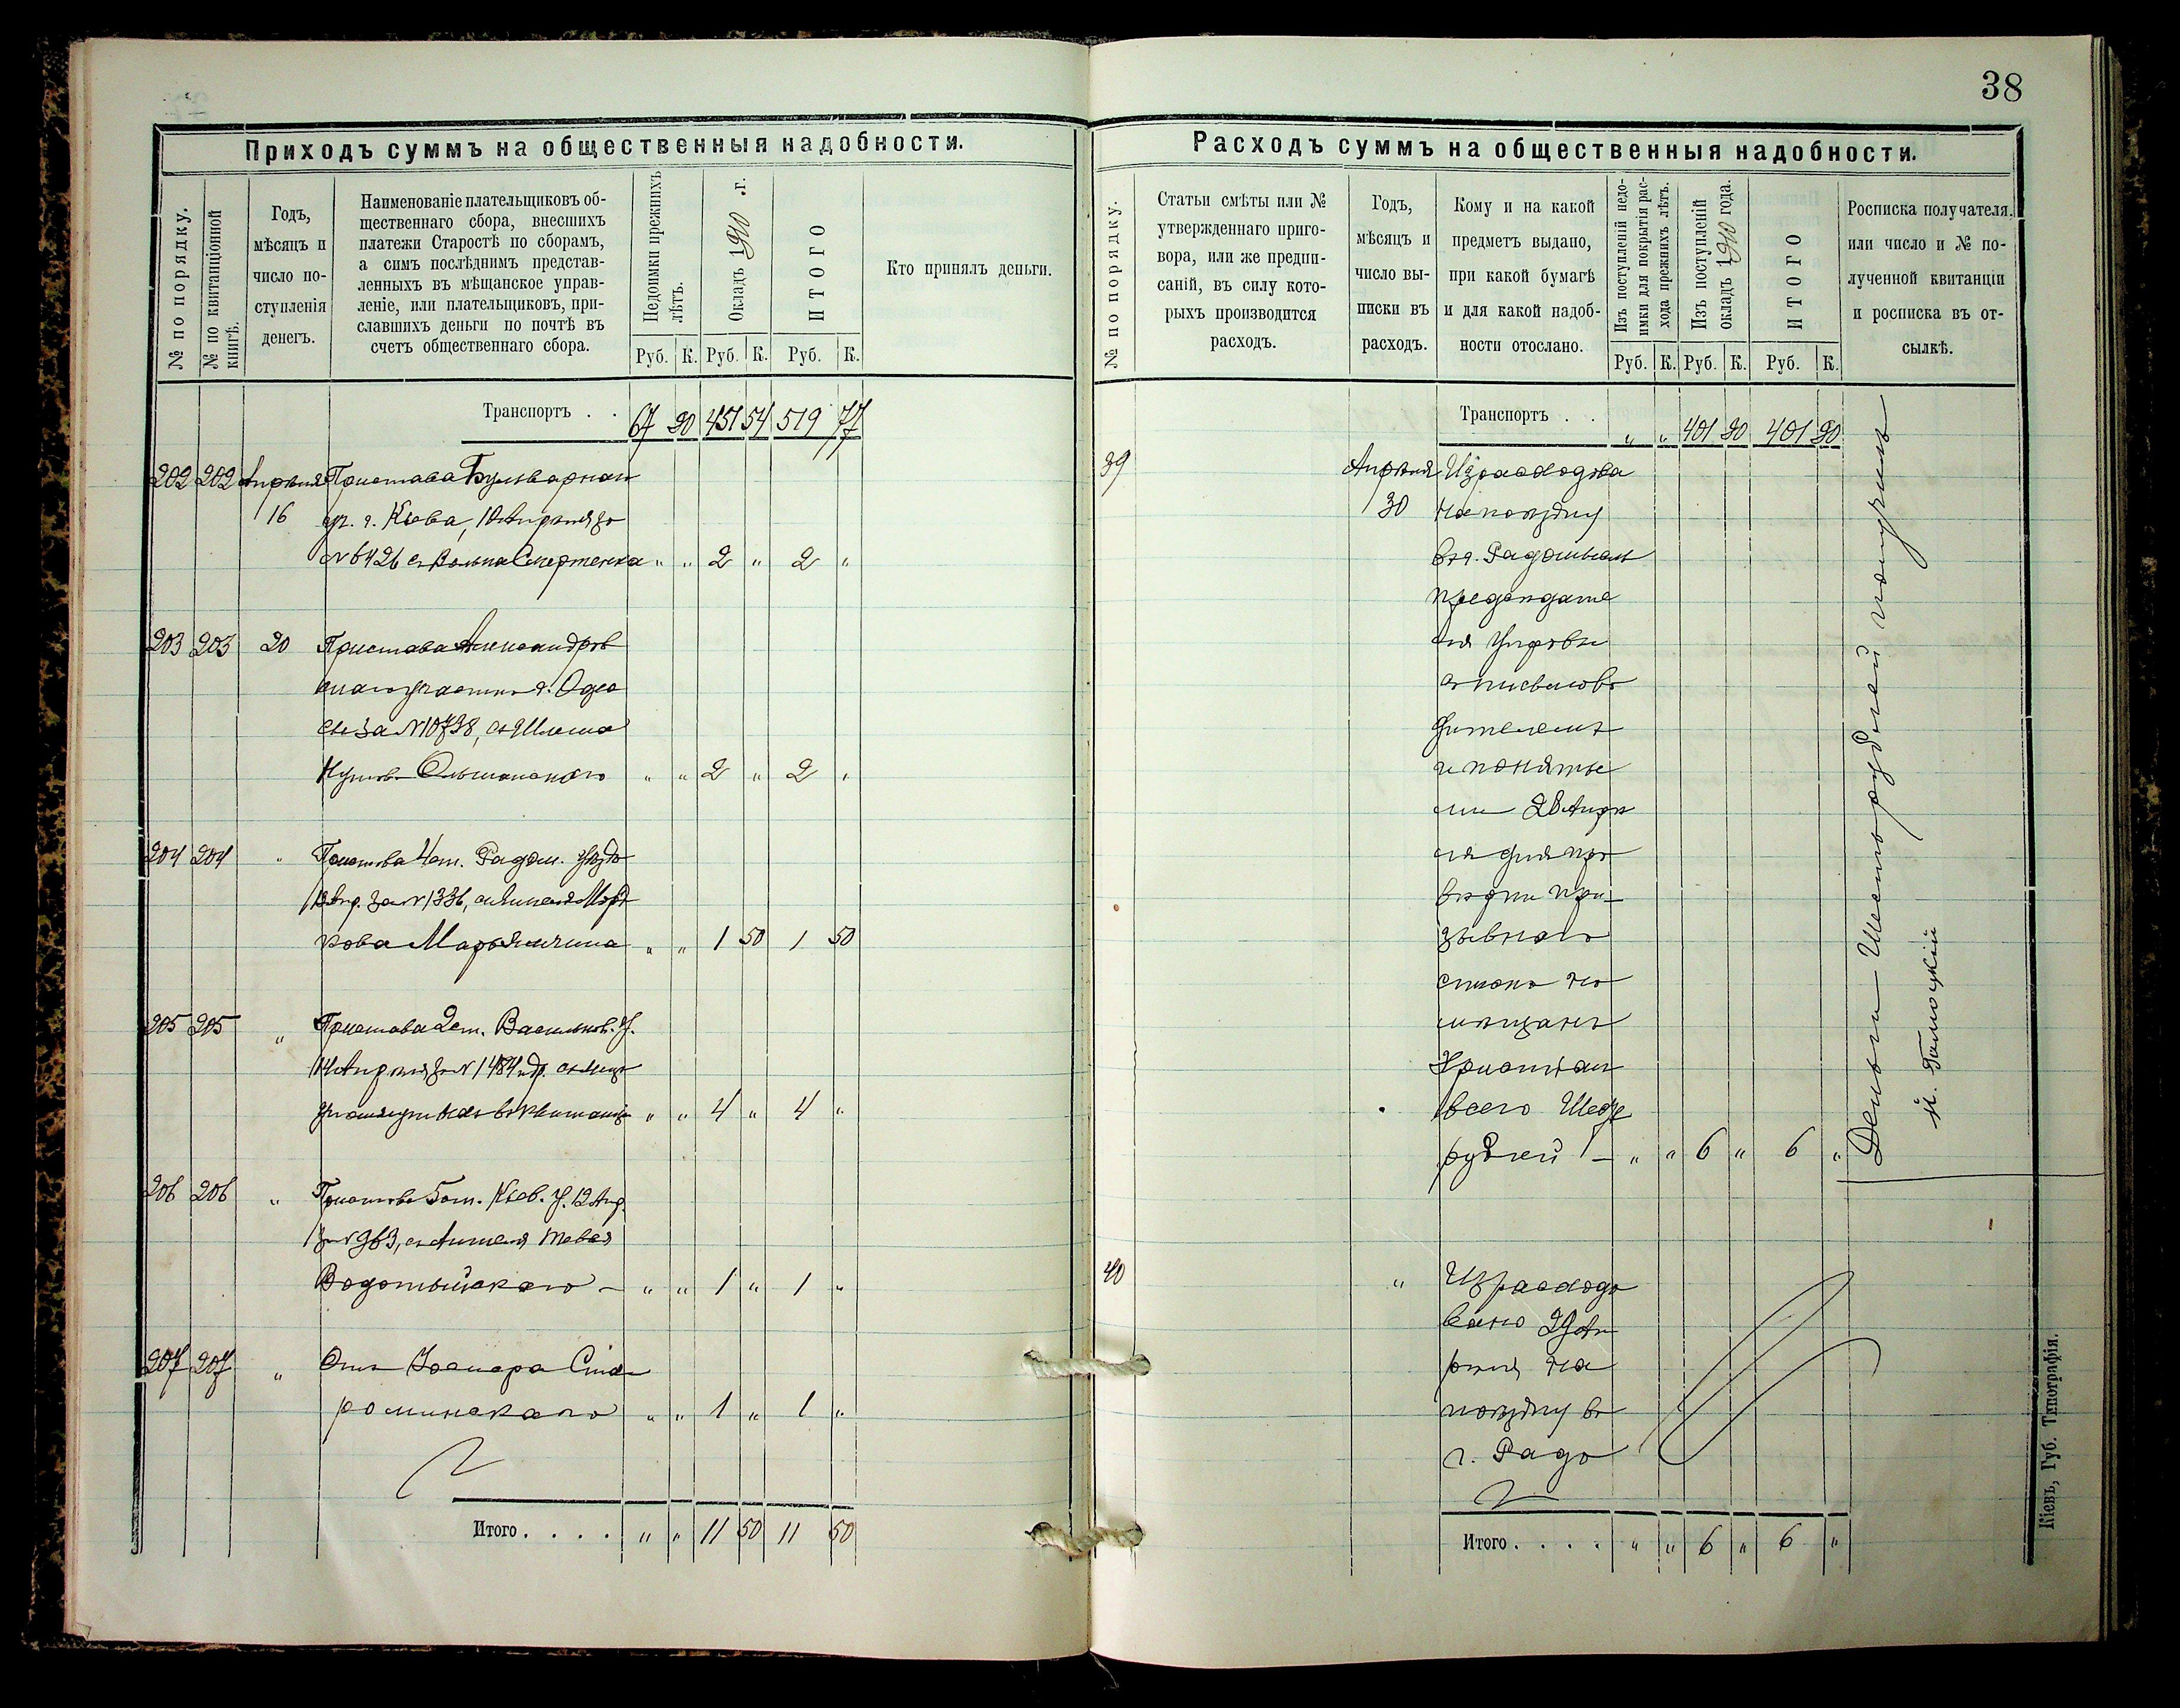 38
Приходъ суммъ на общественныя надобности.
№ по порядку.
№ по квитанціонной книгѣ.
Годъ,
мѣсяцъ и
число по-
ступленія
денегъ.
Наименованіе плательщиковъ об-
щественнаго сбора, внесшихъ
платежи Старостѣ по сборамъ,
а симъ послѣднимъ представ-
ленныхъ въ мѣщанское управ-
леніе, или плательщиковъ, при-
славшихъ деньги по почтѣ въ
счетъ общественнаго сбора.
Недоимки прежнихъ
лѣтъ.
Окладъ 1910 .г.
ИТОГО
Руб. К. Руб. К. Руб. К.
Кто принялъ деньги.
Транспортъ . . 67 20 451 54 519 77
202 202 Апрѣля Пристава Бульварнаго
16 уч. г. Кіева, 10 Апрѣля за
№ 6426 съ " " 2 " 2 "
203 203 20 Пристава Александров
скаго участка г. Одес
сы за № 10738, съ
Ольшанскаго " " 2 " 2 "
204 204 " Пристава 4 ст. Радом. уѣзда
Апр. за № 1336, съ
" " 1 50 1 50
205 205 " Пристава 2 ст. Васильков. у.
14 Апрѣля за № 1484 съ лицъ
въ квитанціи " " 4 " 4 "
206 206 " Пристава 5 ст. Кіев. у. 12 Апр.
за № 963, съ
Водотыйскаго - " " 1 " 1 "
207 207 " Отъ
" " 1 " 1 "
Итого . . . . " " 11 50 11 50
Расходъ суммъ на общественныя надобности.
№ по порядку.
Статьи смѣты или №
утвержденнаго приго-
вора, или же предпи-
саній, въ силу кото-
рыхъ производится
расходъ.
Годъ,
мѣсяцъ и
число вы-
писки въ
расходъ.
Кому и на какой
предметъ выдано,
при какой бумагѣ
и для какой надоб-
ности отослано.
Изъ поступленій недо-
имки для покрытія рас-
хода прежнихъ лѣтъ.
Изъ поступленій
окладъ 1910 года.
ИТОГО
Руб. К. Руб. К. Руб. К.
Росписка получателя.
или число и № по-
лученной квитанціи
и росписка въ от-
сылкѣ.
Транспортъ . . " " 401 20 401 20
39 Апрѣля Израсходова
30 на поѣздку
въ г. Радомысль
предсѣдате
ля Управы
съ письмово
дителемъ
и поняты
ми 28 Апрѣ
ля для про
вѣрки при-
зывного
списка на
мѣщанъ
Христіанъ
всего Шесть
рублей - " " 6 " 6 "
Деньги Шесть рублей получилъ
40 " Израсходо
вано 29 Ап
рѣля на
поѣздку въ
г. Радо
Итого . . . . " " 6 " 6 "
Кіевъ, Губ. Типографія.